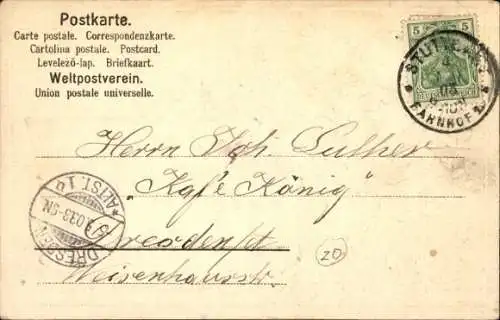 Postkarte.
Carte postale. Correspondenzkarte.
Cartolina postale. Postcard.
Levelező-lap. Briefkaart.
Weltpostverein.
Union postale universelle.
5 5
BAHNHOF
Herrn Joh. Luther
„Kafe König"
Dresden
Waisenhausstr.
DRESDEN
20